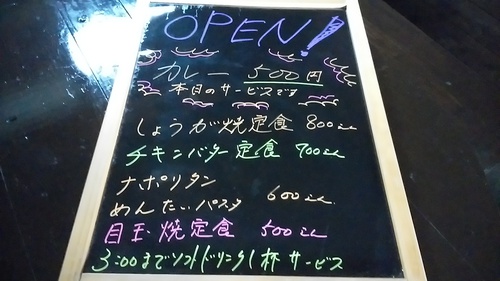 OPEN!
カレー 500円
本日のサービスです
しょうが焼定食 800えん
チキンバター定食 700えん
ナポリタン
めんたいパスタ 600えん
目玉焼定食 500えん
3:00までソフトドリンク1杯サービス